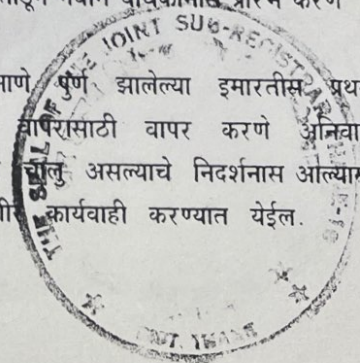 नवीन बांधकामास प्रारंभ करणे
माणे पुर्ण झालेल्या इमारतीस प्रथ
वापरासाठी वापर करणे अनिवा
चालु असल्याचे निदर्शनास आल्यास
कार्यवाही करण्यात येईल.
THE SEAL OF THE JOINT SUB-REGISTRAR